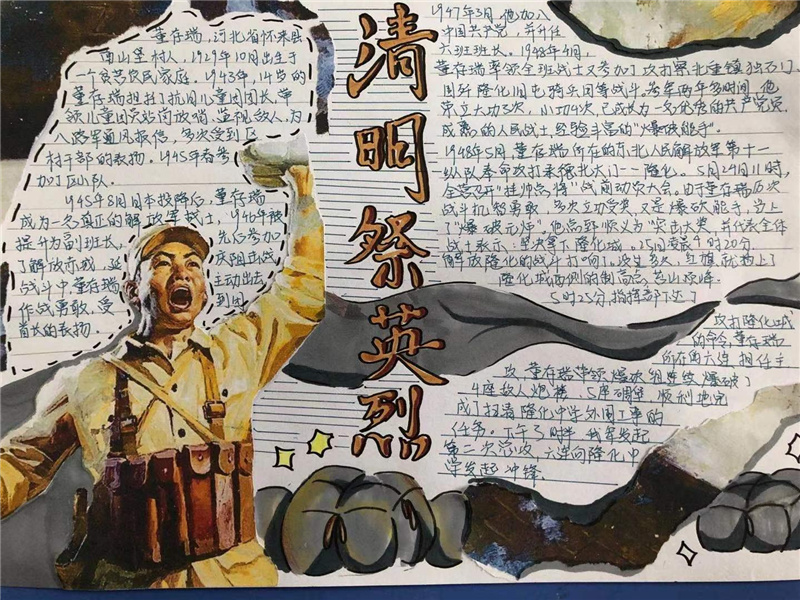 董存瑞,河北省怀来县
南山堡村人,1929年10月出生于
一个贫苦农民家庭。1943年,14岁的
董存瑞担任了抗日儿童团团长,率
领儿童团员站岗放哨,监视敌人,为
八路军通风报信,多次受到区
村干部的表扬。1945年春参
加了区小队。
1945年8月日本投降后,董存瑞
成为一名真正的解放军战士,1946年被
提升为副班长,先后参加
了解放赤城,延庆阻击战
战斗中董存瑞主动出击
作战勇敢,受到团
首长的表扬。
清明祭英烈
1947年3月,他加入
中国共产党,并升任
六班班长。1948年4月,
董存瑞率领全班战士又参加了攻打察北重镇独石口
围歼隆化旧屯骑兵团等战斗。参军两年多时间,他
荣立大功3次,小功4次,已成长为一名优秀的共产党员,
成熟的人民战士,经验丰富的"爆破能手"。
1948年5月,董存瑞所在的东北人民解放军第十一
纵队奉命攻打承德北大门——隆化。5月24日11时,
全营召开"挂帅点将"战前动员大会,由于董存瑞历次
战斗机智勇敢,多次立功受奖,又是爆破能手,当上
了"爆破元帅"。他点郅顺义为"突击大将",并代表全体
战士表示:坚决拿下隆化城。25日凌晨4时20分,
解放隆化的战斗打响了。没过多久,红旗就插上了
隆化城西侧的制高点,苔山顶峰。
5时25分,指挥部下达了
攻打隆化城
的命令,董存瑞
所在的六连,担任主
攻,董存瑞率领爆破组连续爆破了
4座敌人炮楼、5座碉堡,顺利地完
成了扫清隆化中学外围工事的
任务。下午3时半,我军发起
第二次总攻,六连向隆化中
学发起冲锋。